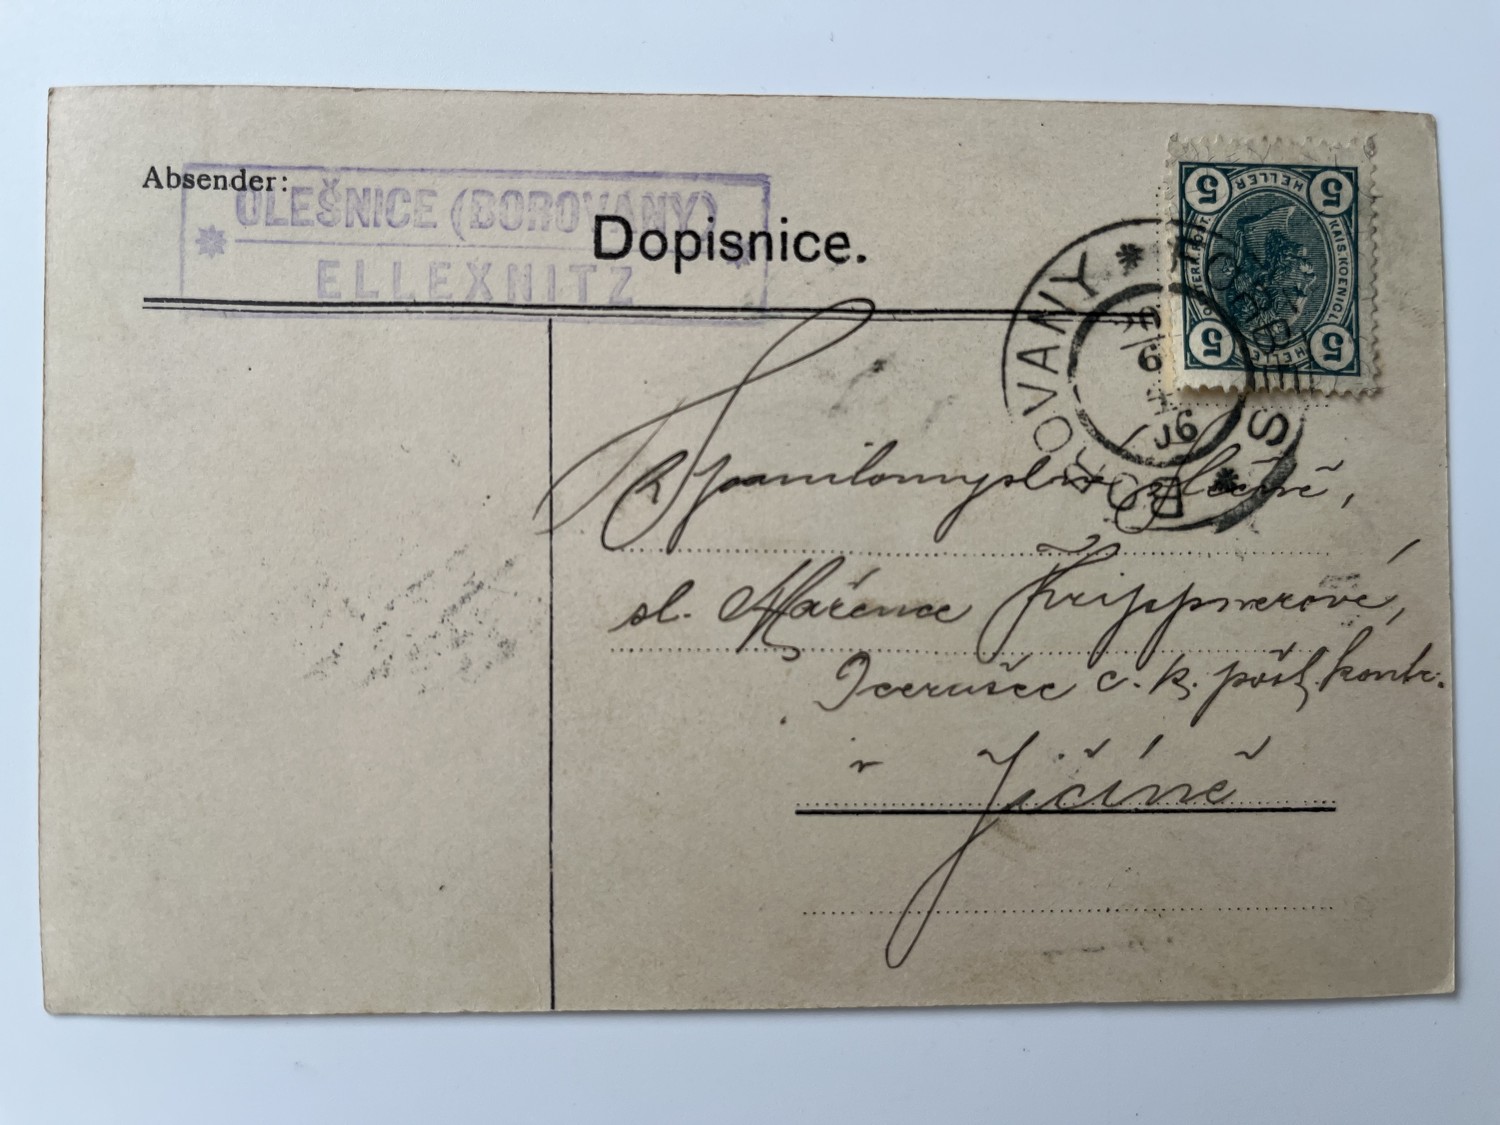 Absender:
OLEŠNICE (BOROVANY)
ELLEXNITZ
Dopisnice.
5 HELLER 5
KAIS. KOENIGL.
ÖSTERR. POST.
5 HELLER 5
FORBES
BOROVANY
6
06
sl. Mařence Krippnerové,
Dcerušce c. k. pošt. kontr.
v Jičíně